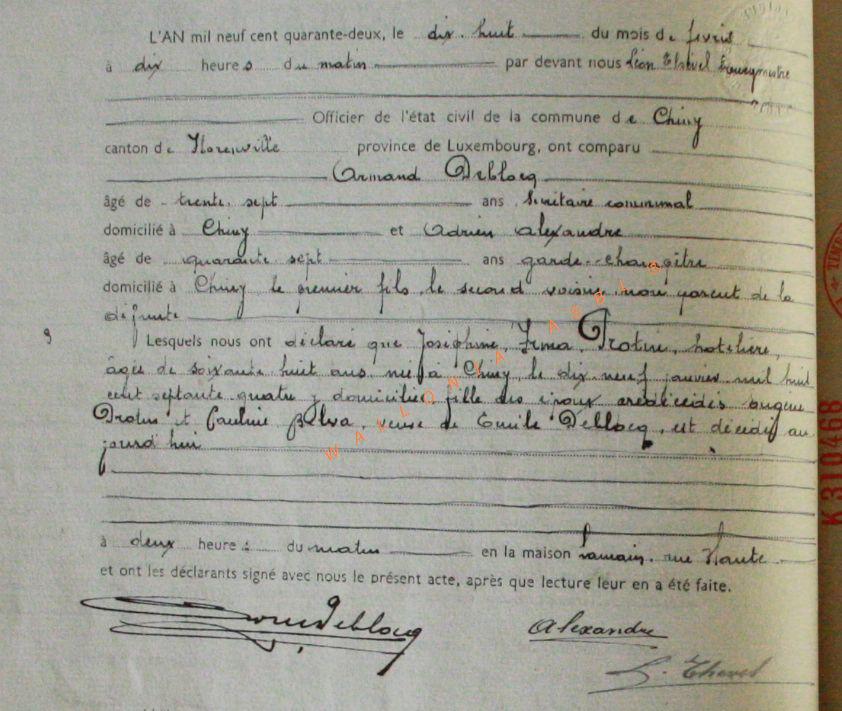 L'AN mil neuf cent quarante-deux, le dix huit du mois de février
à dix heures du matin par devant nous Léon Thével Bourgmestre
Officier de l'état civil de la commune de Chiny
canton de Florenville province de Luxembourg, ont comparu
Armand Deblocq
âgé de trente sept ans Secrétaire communal
domicilié à Chiny et Adrien Alexandre
âgé de quarante sept ans garde-champêtre
domicilié à Chiny le premier fils, le second voisin, non parent de la
défunte
9 Lesquels nous ont déclaré que Joséphine, Irma, Protin, hotelière,
âgée de soixante huit ans née à Chiny le dix neuf janvier mil huit
cent septante quatre y domiciliée, fille des époux décédés Eugène
Protin et Pauline veuve de Emile Deblocq, est décédée au
jourd'hui
à deux heures du matin en la maison rue Haute
et ont les déclarants signé avec nous le présent acte, après que lecture leur en a été faite.
Deblocq Alexandre
L. Thével
WALLONIA ASBL ©
K310468